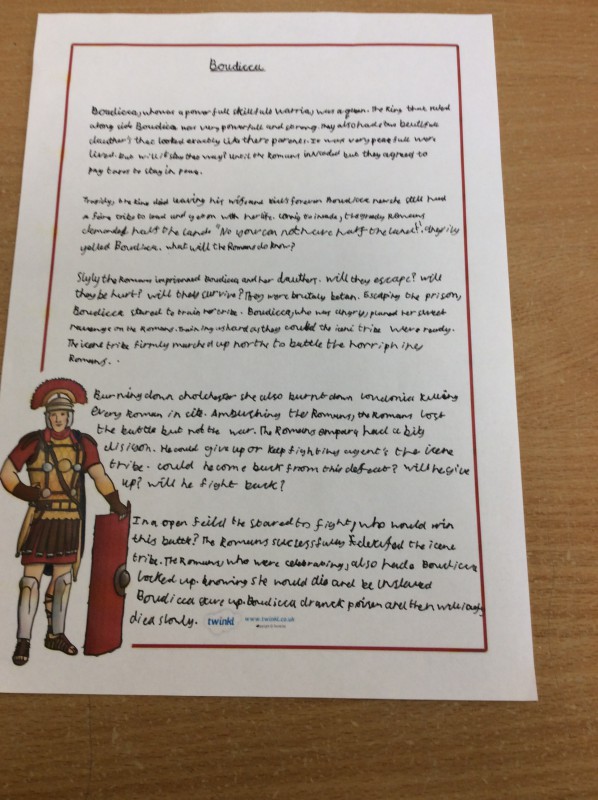 Boudicca
Boudicca, who was a powerfull skillfull warria, was a queen. The King that ruled
along side Boudicca was very powerfull and strong. They also had two beutifull
dauther's that looked exactly like there parents. It was very peacfull were
lived. But will it stay this way? Until the Romans invaded but they agreed to
pay taxes to stay in peace.
Tragicly, the King died leaving his wife and kids forever. Boudicca new she still had
a tribe to lead and get on with her life. to invade, the greedy Romans
demanded half the lands. "No you can not have half the lands!". Angrily
yelled Boudicca. what will the Romans do know?
Slyly the Romans imprisoned Boudicca and her dauthers. Will they escape? will
they be hurt? will they survive? They were brutaly betan. Escaping the prison,
Boudicca stared to train her tribe. Boudicca, who was angry, planed her sweet
revenge on the Romans. Training as hard as they could the iceni tribe were ready.
The icene tribe firmly marched up northe to battle the horriphing
Romans...
Burning down cholchester she also burnt down Londonia killing
every Roman in site. Ambushing the Romans, the Romans lost
the battle but not the war. The Romans empara had a big
disison. He could give up or keep fighting agent's the icene
tribe. could he come back from this defeat? Will he give
up? will he fight back?
In a open feild the stared to fight, who would win
this battle? The Romans successfully defeated the icene
tribe. The Romans, who were celebrating, also had Boudicca
locked up. knowing she would die and be unslaved
Boudicca gave up. Boudicca dranck poisen and then willingly
died slowly.
twinkl www.twinkl.co.uk